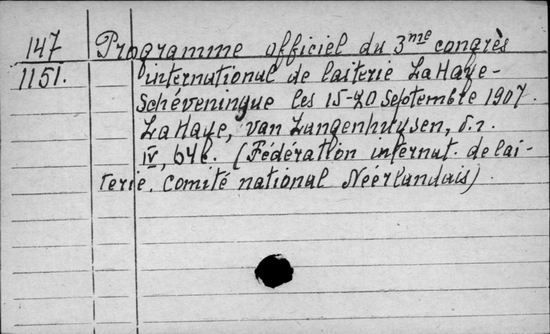 147 Programme officiel du 3me congrès
1151. international de laiterie La Haye-
Schéveningue les 15-20 Septembre 1907.
La Haye, van Langenhuysen, s.
IV, 64 (Fédération internat. de lai-
terie, Comité national Néerlandais).